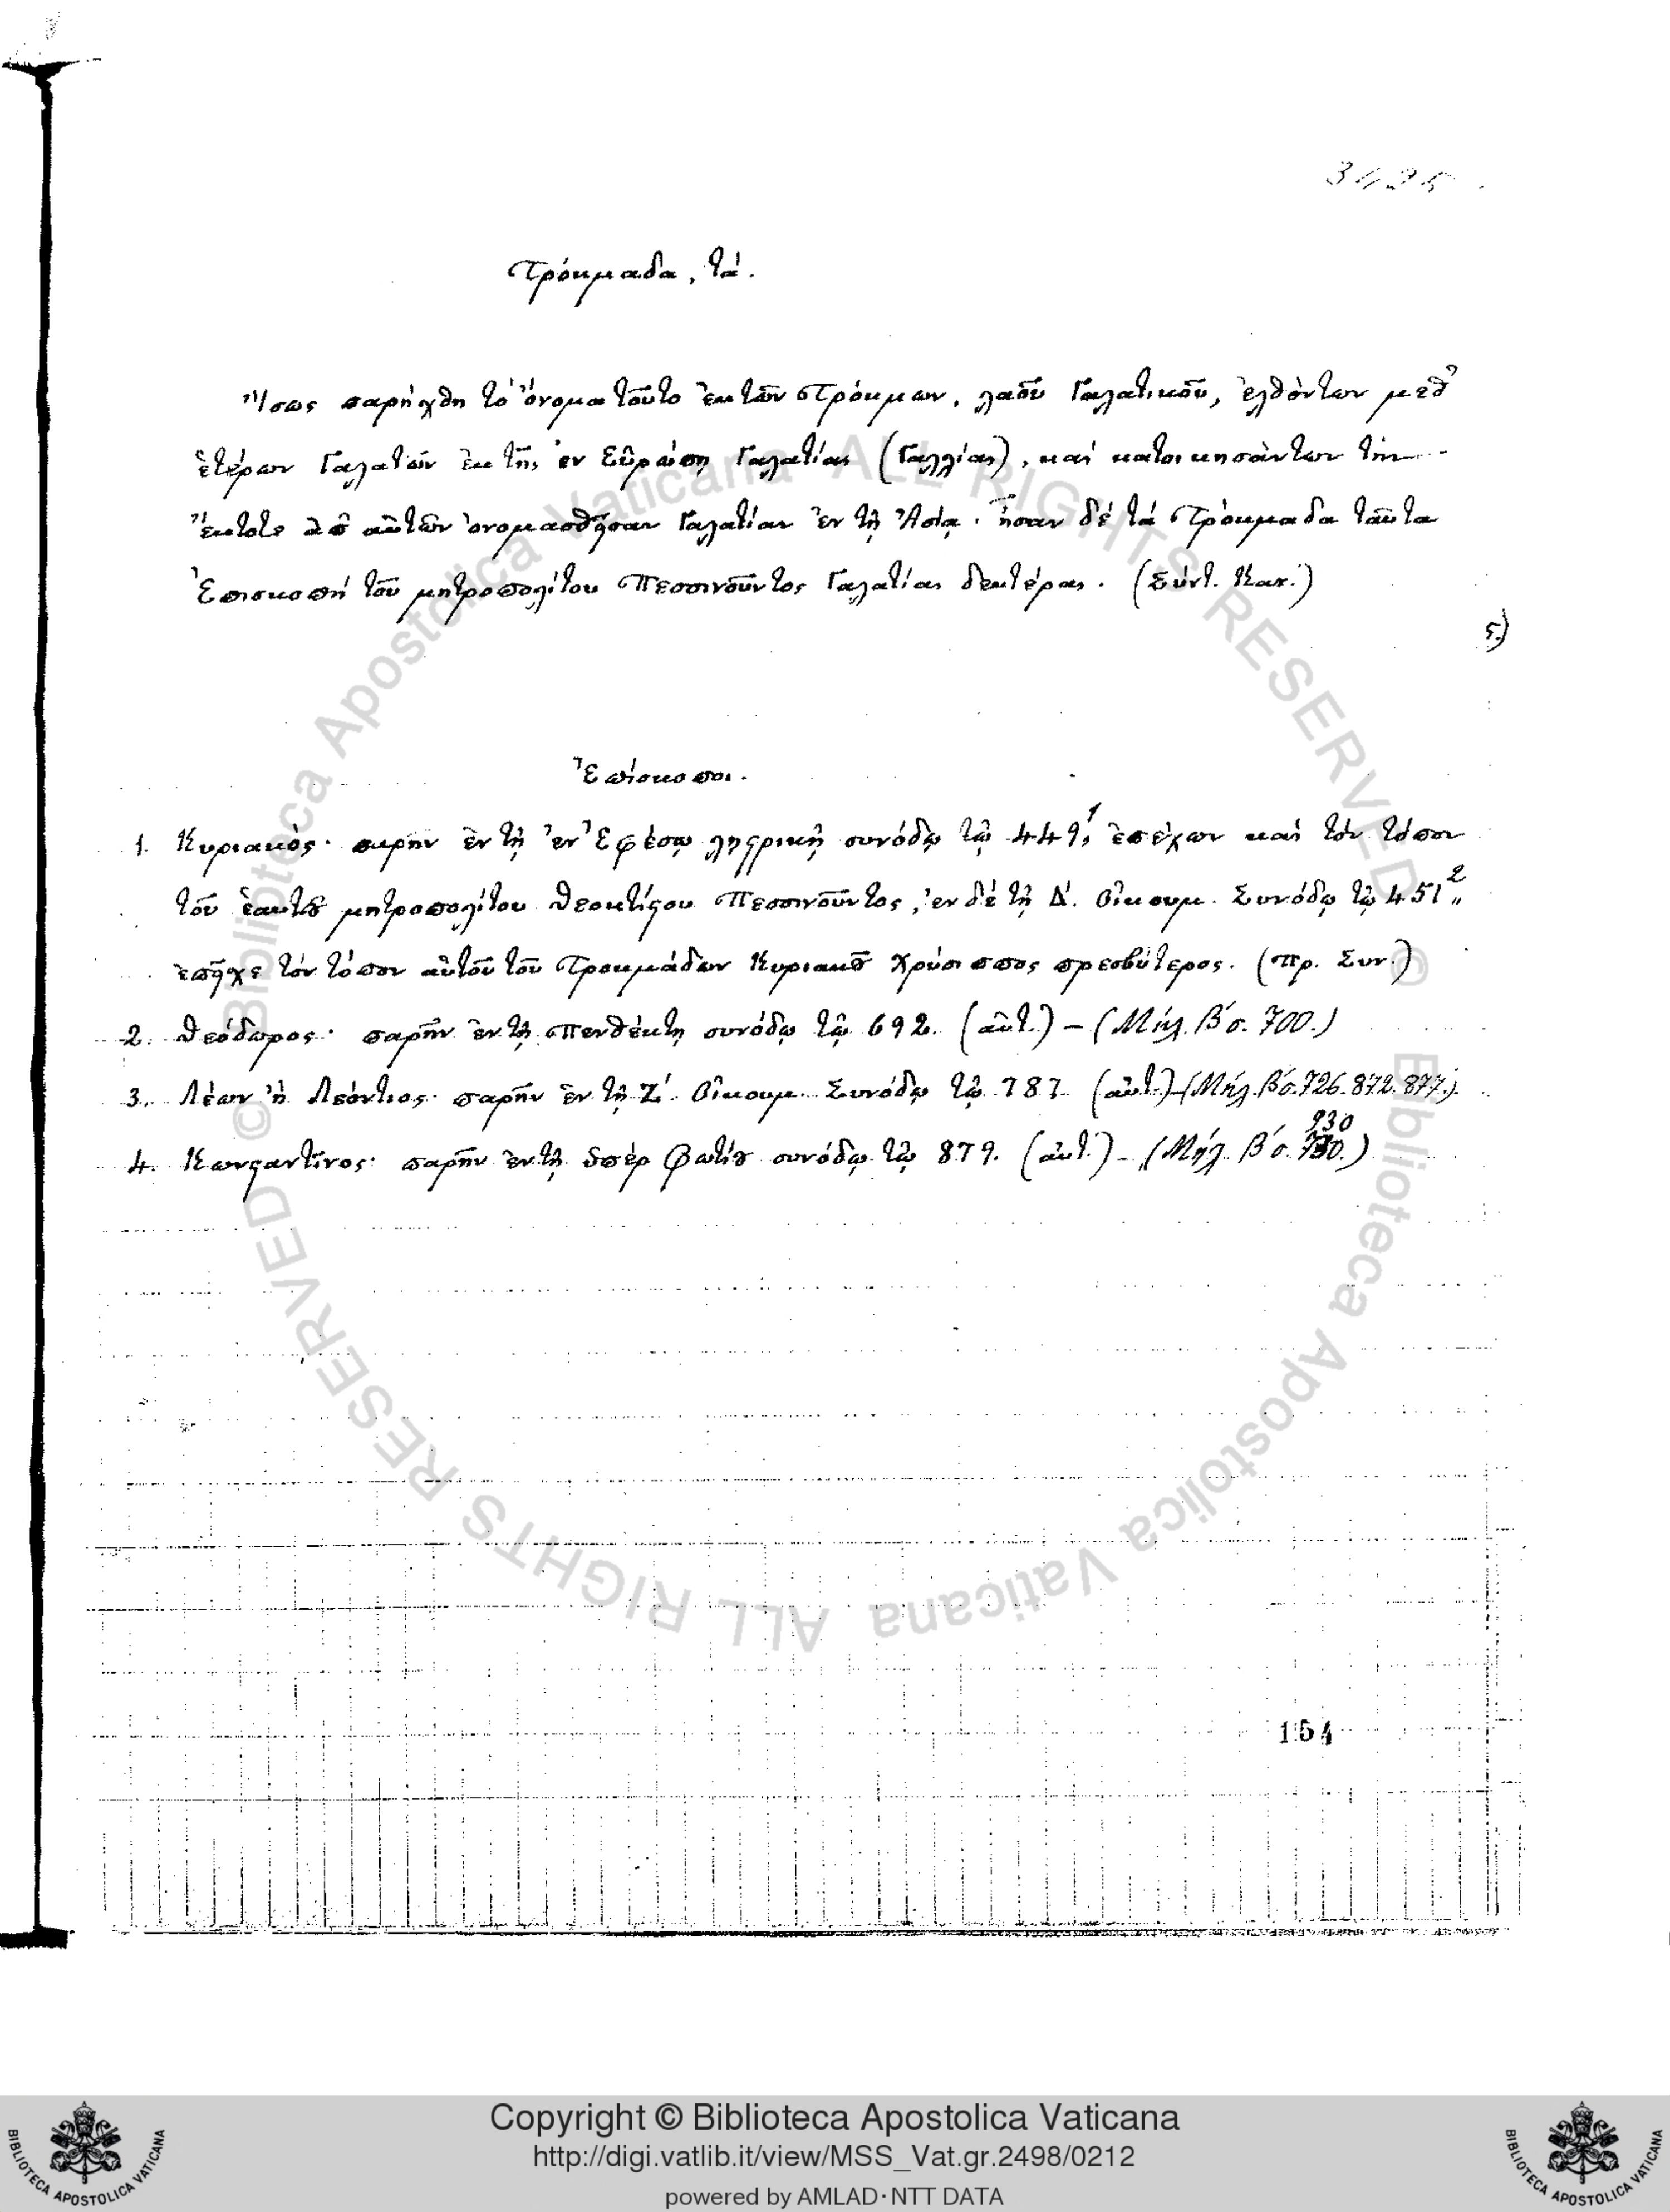 Τρόκμαδα, τά.
Ἴσως παρήχθη τὸ ὄνομα τοῦτο ἐκ τῶν Τρόκμων, λαοῦ Γαλατικοῦ, ἐλθόντων μεθ'
ἑτέρων Γαλατῶν ἐκ τῆς ἐν Εὐρώπῃ Γαλατίας (Γαλλίας), καὶ κατοικησάντων τὴν
ἔκτοτε ἀπ' αὐτῶν ὀνομασθῆσαν Γαλατίαν ἐν τῇ Ἀσίᾳ. ἦσαν δὲ τὰ Τρόκμαδα ταῦτα
Ἐπισκοπὴ τοῦ μητροπολίτου Πεσσινοῦντος Γαλατίας δευτέρας. (Σύντ. Καν.)
ς)
Ἐπίσκοποι.
1. Κυριακός· παρῆν ἐν τῇ ἐν Ἐφέσῳ λῃστρικῇ συνόδῳ τῷ 449,¹ ἐπέχων καὶ τὸν τόπον
τοῦ ἑαυτοῦ μητροπολίτου Θεοκτίστου Πεσσινοῦντος, ἐν δὲ τῇ Δ΄. Οἰκουμ. Συνόδῳ τῷ 451²,,
ἐπῆχε τὸν τόπον αὐτοῦ τοῦ Τροκμάδων Κυριακοῦ Χρύσιππος πρεσβύτερος. (Πρ. Συν.)
2. Θεόδωρος· παρῆν ἐν τῇ Πενθέκτῃ συνόδῳ τῷ 692. (αὐτ.) – (Μήλ. Β΄ σ. 700.)
3. Λέων ἢ Λεόντιος· παρῆν ἐν τῇ Ζ΄. Οἰκουμ. Συνόδῳ τῷ 787. (αὐτ.) – (Μήλ. Β΄ σ. 726. 872. 877.)
930
4. Κωνσταντῖνος· παρῆν ἐν τῇ ὑπὲρ Φωτίου συνόδῳ τῷ 879. (αὐτ.) – (Μήλ. Β΄ σ.)
154
Copyright © Biblioteca Apostolica Vaticana
http://digi.vatlib.it/view/MSS_Vat.gr.2498/0212
powered by AMLAD·NTT DATA
BIBLIOTECA APOSTOLICA VATICANA
BIBLIOTECA APOSTOLICA VATICANA
© Biblioteca Apostolica Vaticana ALL RIGHTS RESERVED
© Biblioteca Apostolica Vaticana ALL RIGHTS RESERVED